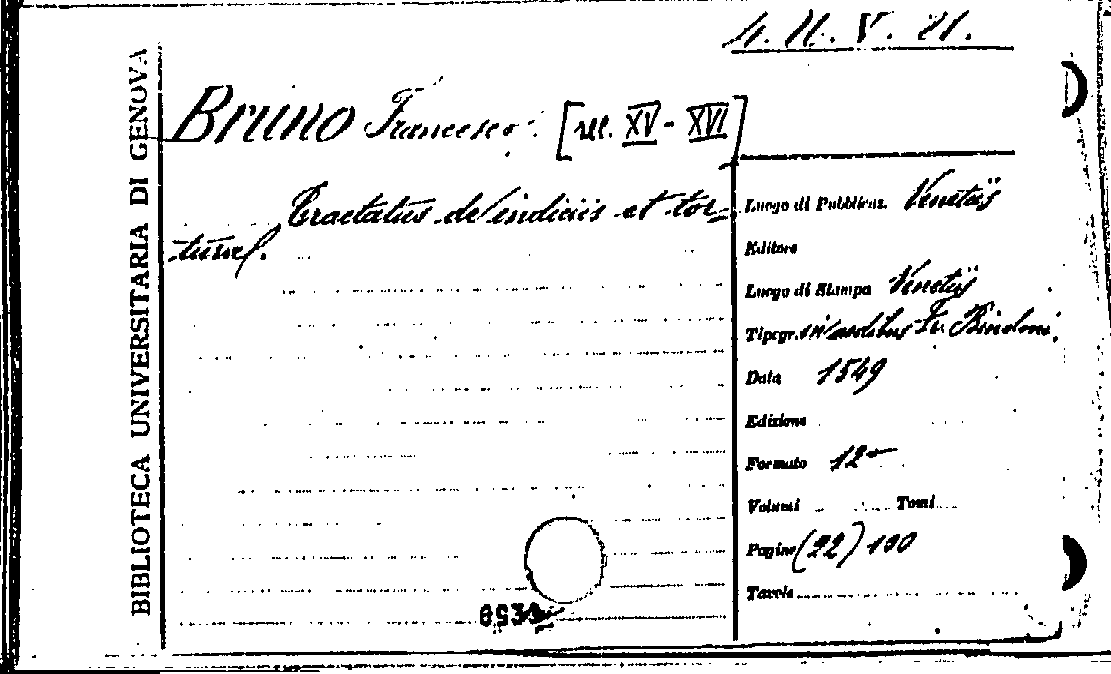 4. U. V. 21.
BIBLIOTECA UNIVERSITARIA DI GENOVA
Bruno Francesco. [sec. XV - XVI]
Tractatus de indiciis et tor-
turae.
Luogo di Pubblicaz. Venetiis
Editore
Luogo di Stampa Venetiis
Tipogr. in aedibus Fr. Bindoni,
Data 1549
Edizione
Formato 12°
Volumi Tomi
Pagine (22) 100
Tavole